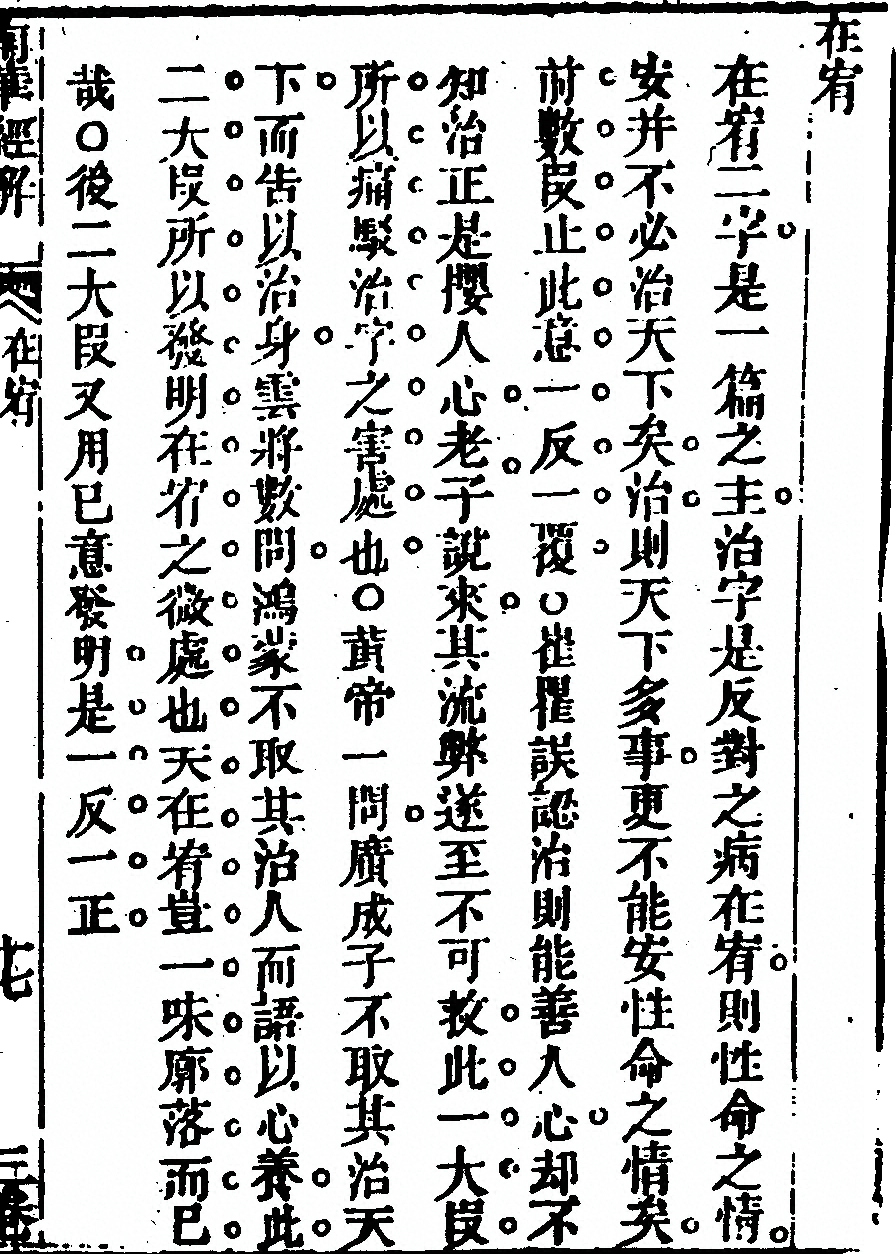 在宥
在宥二字是一篇之主治字是反對之病在宥則性命之情
安并不必治天下矣治則天下多事更不能安性命之情矣
前數段止此意一反一覆○崔瞿誤認治則能善人心却不
知治正是攖人心老子說來其流弊遂至不可救此一大段
所以痛駁治字之害處也○黃帝一問廣成子不取其治天
下而告以治身雲將數問鴻蒙不取其治人而語以心養此
二大段所以發明在宥之微處也夫在宥豈一味廓落而已
哉○後二大段又用已意發明是一反一正
南華經解
在宥
十七